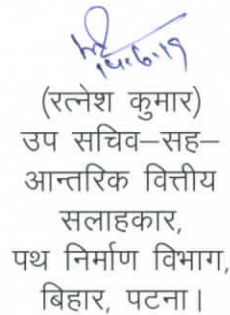 14.6.19
(रत्नेश कुमार)
उप सचिव–सह–
आन्तरिक वित्तीय
सलाहकार,
पथ निर्माण विभाग,
बिहार, पटना।